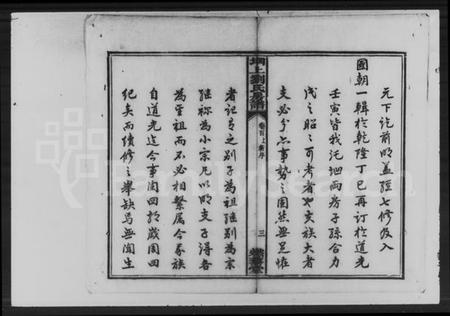 元下迄前明蓋經七修及入
國朝一輯於乾隆丁巳再訂於道光
壬寅皆我汑地兩房子孫合力
成之昭之可考者也夫族大者
支必分亦事勢之固然無足怪
坰上劉氏房譜
卷首上 新序
三
者記有之別子為祖繼別為宗
繼祢為小宗凡以明支子得各
為星祖而不必相繫屬今家族
自道光迄今事閱四拾歲閱四
紀矣而續修之舉缺焉無聞生